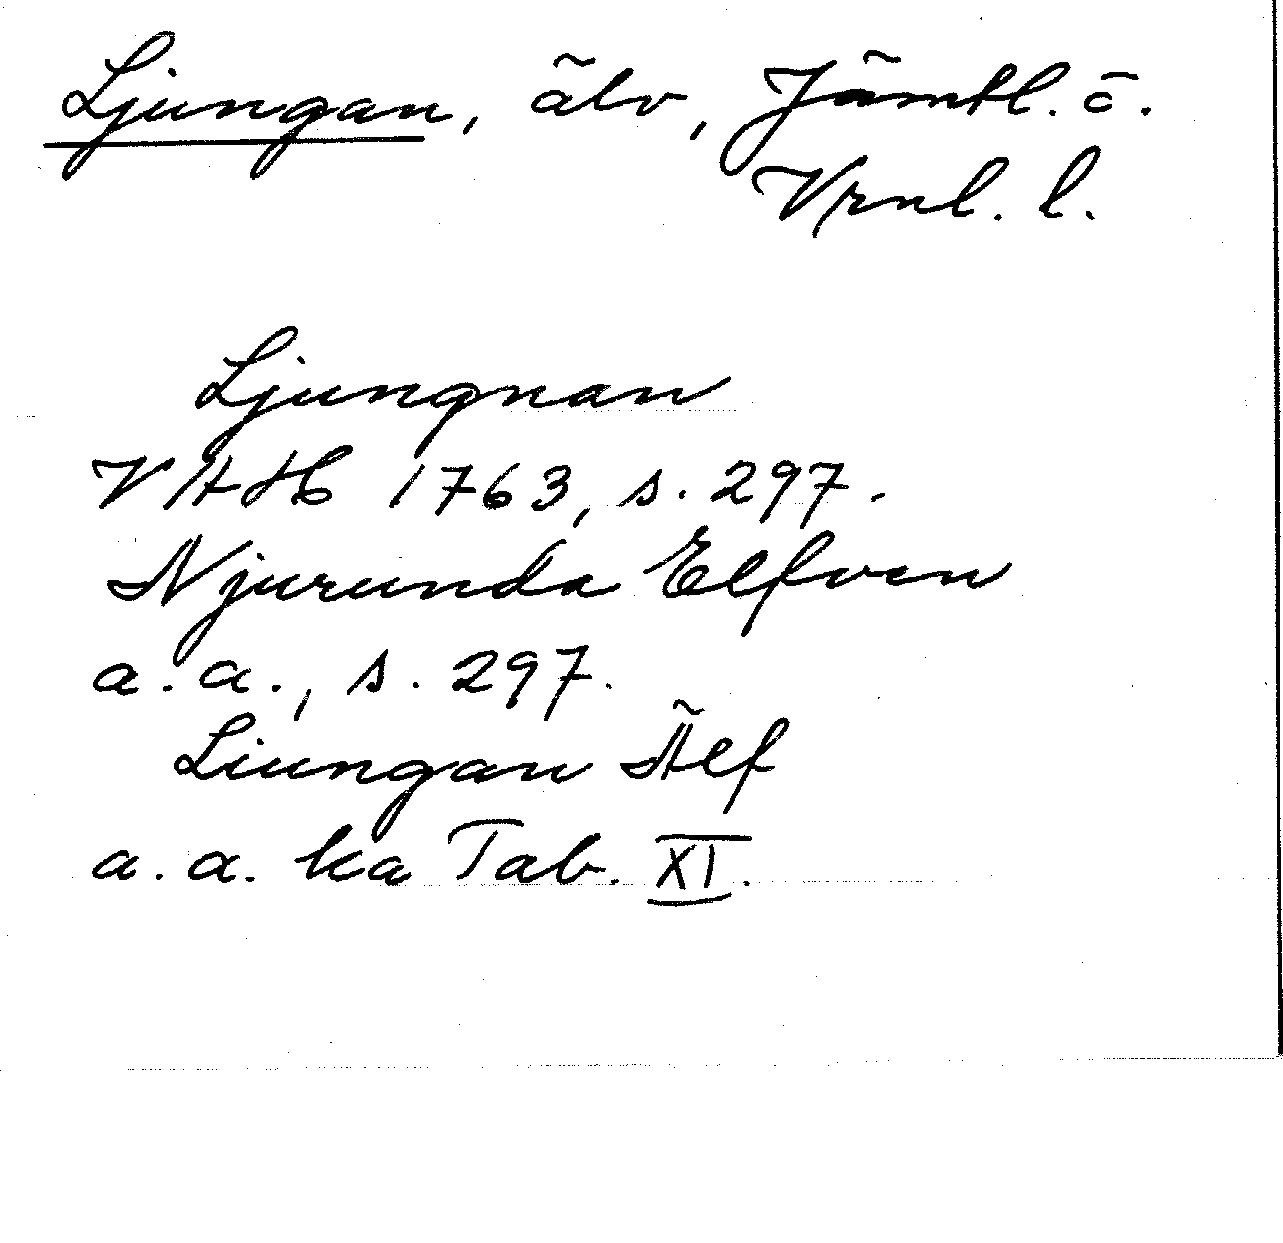 Ljungan, älv, Jämtl. o.
Vrnl. l.
Ljungnan
VAH 1763, s. 297.
Njurunda Elfven
a. a., s. 297.
Liungan Älf
a. a. ka Tab. XI.